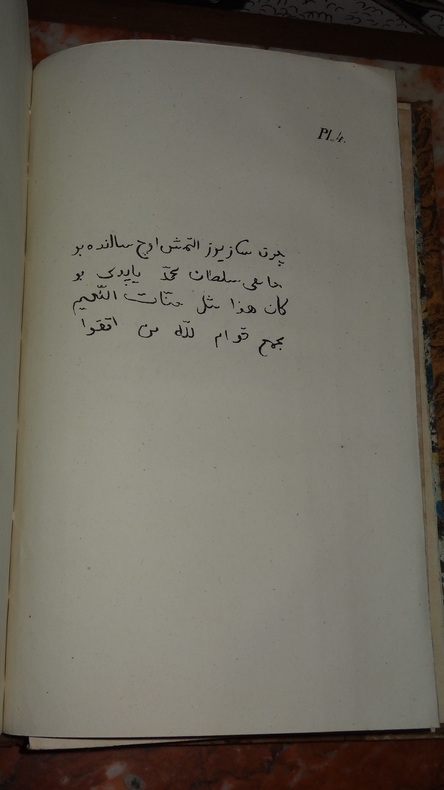 Pl. 4.
چون سکز یوز التمش اوچ سالنده بو
جامعی سلطان محمّد یاپدی بو
کان هذا مثل جنّات النّعیم
یجمع قوام للّه من اتقوا